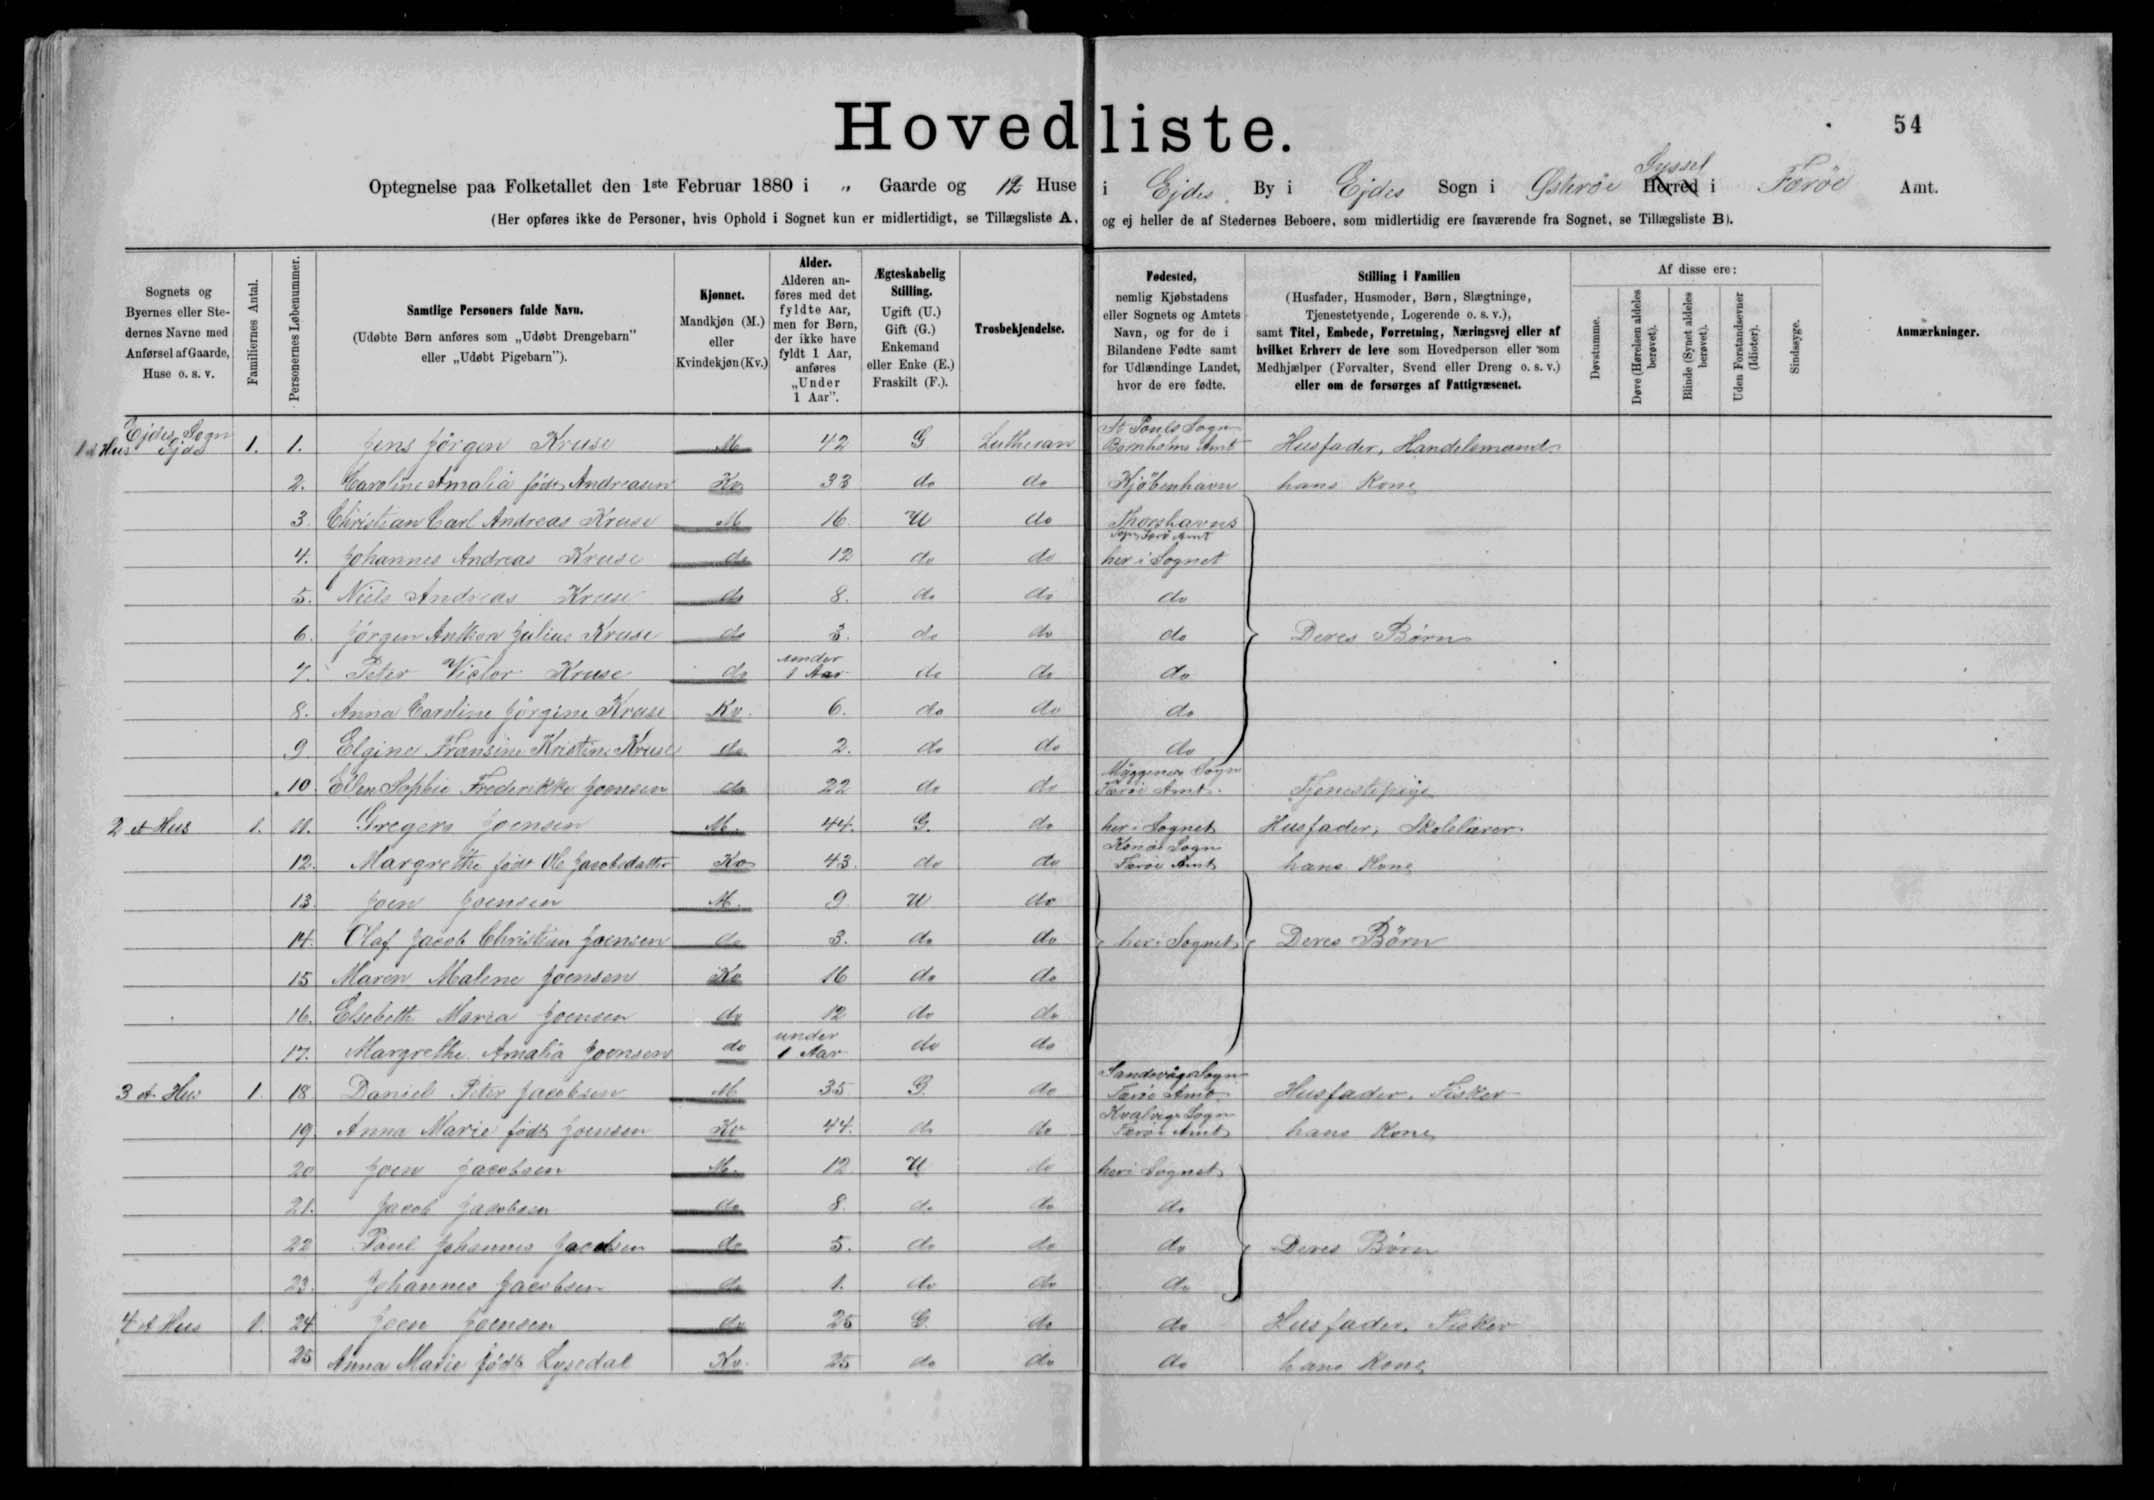 Hovedliste.
54
Optegnelse paa Folketallet den 1ste Februar 1880 i „ Gaarde og 12 Huse i Ejde By i Ejdes Sogn i Østerøe Herred Syssel i Færöe Amt.
(Her opføres ikke de Personer, hvis Ophold i Sognet kun er midlertidigt, se Tillægsliste A. og ej heller de af Stedernes Beboere, som midlertidig ere fraværende fra Sognet, se Tillægsliste B).
Sognets og Byernes eller Stedernes Navne med Anførsel af Gaarde, Huse o. s. v.
Familiernes Antal.
Personernes Løbenummer.
Samtlige Personers fulde Navn. (Udøbte Børn anføres som „Udøbt Drengebarn" eller „Udøbt Pigebarn").
Kjønnet. Mandkjøn (M.) eller Kvindekjøn (Kv.)
Alder. Alderen anføres med det fyldte Aar, men for Børn, der ikke have fyldt 1 Aar, anføres „Under 1 Aar".
Ægteskabelig Stilling. Ugift (U.) Gift (G.) Enkemand eller Enke (E.) Fraskilt (F.).
Trosbekjendelse.
Fødested, nemlig Kjøbstadens eller Sognets og Amtets Navn, og for de i Bilandene Fødte samt for Udlændinge Landet, hvor de ere fødte.
Stilling i Familien (Husfader, Husmoder, Børn, Slægtninge, Tjenestetyende, Logerende o. s. v.), samt Titel, Embede, Forretning, Næringsvej eller af hvilket Erhverv de leve som Hovedperson eller som Medhjælper (Forvalter, Svend eller Dreng o. s. v.) eller om de forsørges af Fattigvæsenet.
Af disse ere:
Døvstumme.
Døve (Hørelsen aldeles berøvet).
Blinde (Synet aldeles berøvet).
Uden Forstandsevner (Idioter).
Sindssyge.
Anmærkninger.
Ejdes Sogn Ejde
1 st Hus 1. 1. Jens Jörgen Kruse M 42 G Lutheran St Pouls Sogn Bornholms Amt Husfader, Handelsmand
2. Caroline Amalia födt Andreasen Kv 33 do do Kjöbenhavn hans Kone
3. Christian Carl Andreas Kruse M 16 U do Thorshavns Sogn Færö Amt
4. Johannes Andreas Kruse do 12 do do her i Sognet
5. Niels Andreas Kruse do 8. do do do
6. Jörgen Anthon Julius Kruse do 3. do do do Deres Börn
7. Peter Victor Kruse do under 1 Aar do do do
8. Anna Caroline Jörgine Kruse Kv. 6. do do do
9 Elgine Fransine Kristine Kruse do 2. do do do
10. Ellen Sophie Frederikke Joensen do 22 do do Myggenes Sogn Færöe Amt. Tjenestepige
2 et Hus 1. 11. Gregers Joensen M. 44. G. do her i Sognet Husfader, Skolelærer
12. Margrethe födt Ole Jacobsdatter Kv 43. do do Sogn Færöe Amt hans Kone
13. Joen Joensen M. 9 U do
14. Olaf Jacob Christian Joensen do 3. do do her i Sognet Deres Börn
15 Maren Malene Joensen Kv 16 do do
16. Elsebeth Maria Joensen do 12 do do
17. Margrethe Amalia Joensen do under 1 Aar do do
3 et Hus 1. 18 Daniel Peter Jacobsen M 35 G. do Sandevågs Sogn Færöe Amt Husfader, Fisker
19. Anna Marie födt Joensen Kv 44. do do Sogn Færöe Amt hans Kone
20 Joen Jacobsen M. 12 U do her i Sognet
21. Jacob Jacobsen do 8. do do do
22 Poul Johannes Jacobsen do 5. do do do Deres Börn
23. Johannes Jacobsen do 1. do do do
4 et Hus 1. 24. Joen Joensen do 25 G. do do Husfader, Fisker
25 Anna Marie födt Lysedal Kv. 25 do do do hans Kone